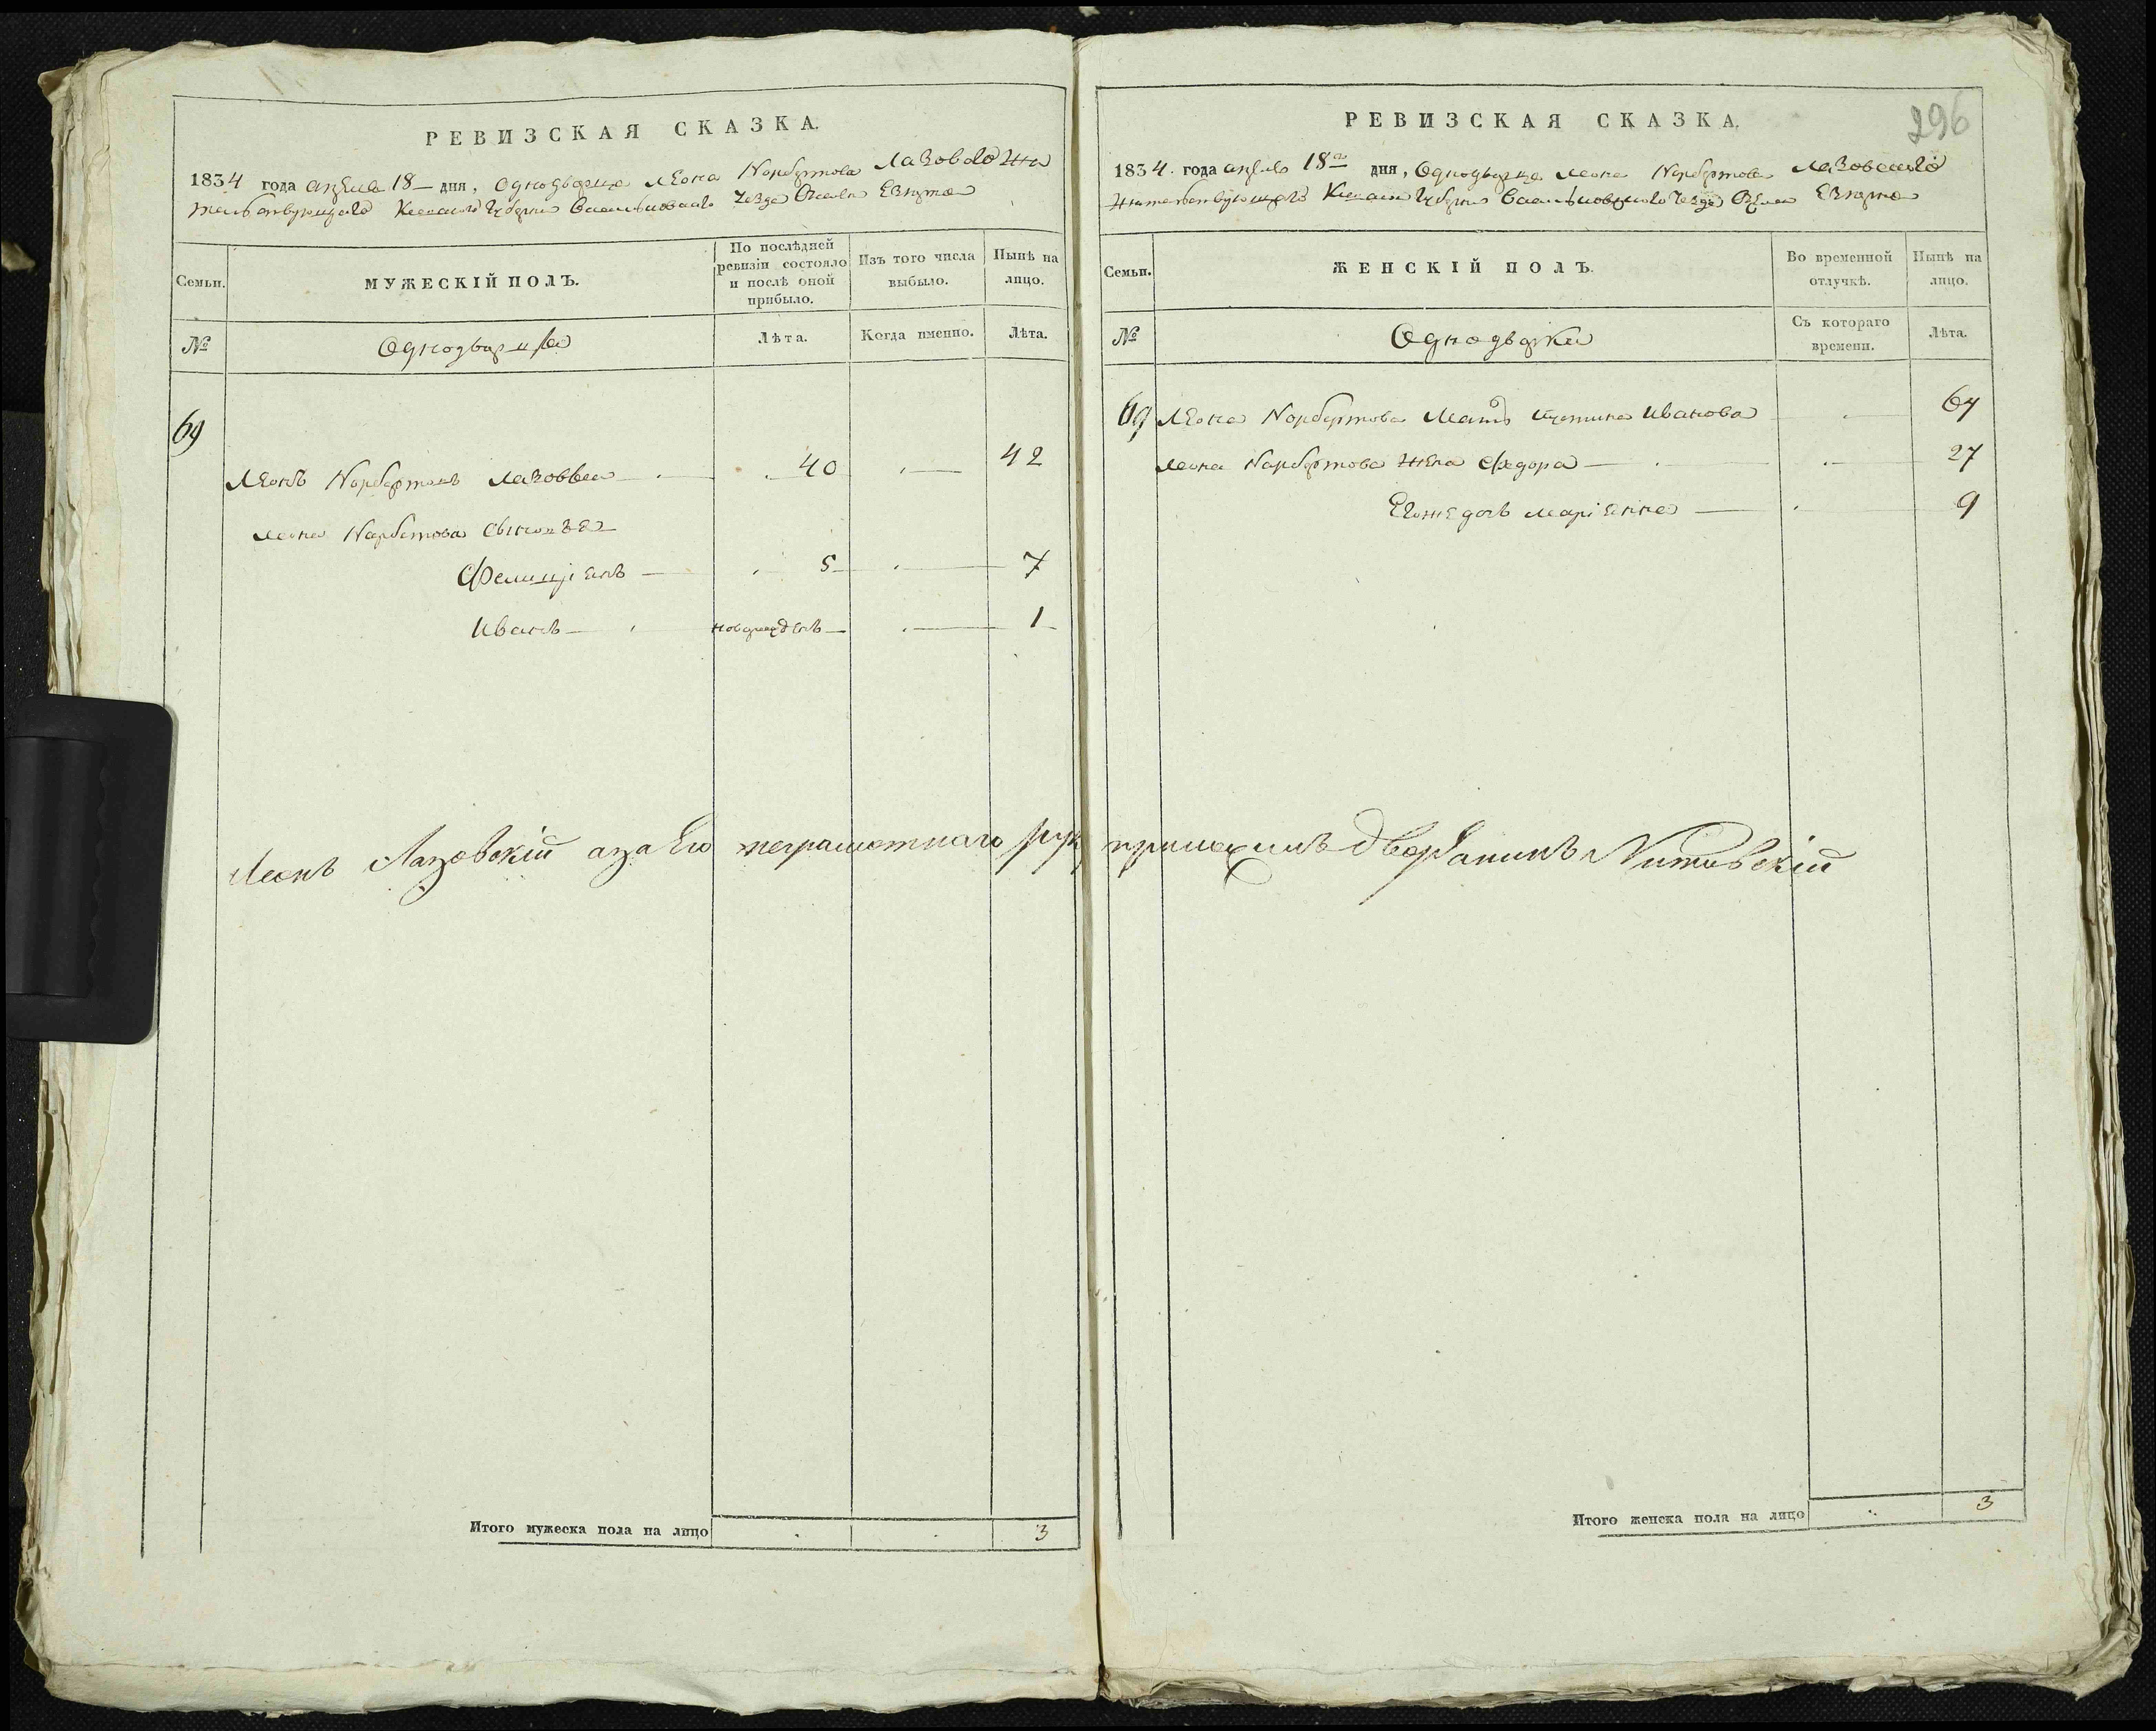 РЕВИЗСКАЯ СКАЗКА.
1834 года апреля 18 дня, Однодворца Леона Норбертова Лазовскаго жи
тельствующаго Киевской Губернии Васильковскаго уезда
Семьи.
МУЖЕСКІЙ ПОЛЪ.
По послѣдней ревизіи состояло и послѣ оной прибыло.
Изъ того числа выбыло.
Нынѣ на лицо.
№
Однодворцы
Лѣта.
Когда именно.
Лѣта.
69
Леонъ Норбертовъ Лазовскій 40 42
Леона Норбертова сыновья
Фелиціянъ 5 7
Иванъ новорожденъ 1
Леонъ Лазовскій а за Его неграмотнаго рук
Итого мужеска пола на лицо 3
296
РЕВИЗСКАЯ СКАЗКА.
1834. года апреля 18го дня, Однодворца Леона Норбертова Лазовскаго
жительствующаго Киевской Губернии Васильковскаго уезда
Семьи.
ЖЕНСКІЙ ПОЛЪ.
Во временной отлучкѣ.
Нынѣ на лицо.
№
Однодворки
Съ котораго времени.
Лѣта.
69 Леона Норбертова Мать Иванова 64
Леона Норбертова жена Федора 27
Егоже дочь Маріянна 9
приложилъ Дворянинъ Витовскій
Итого женска пола на лицо 3